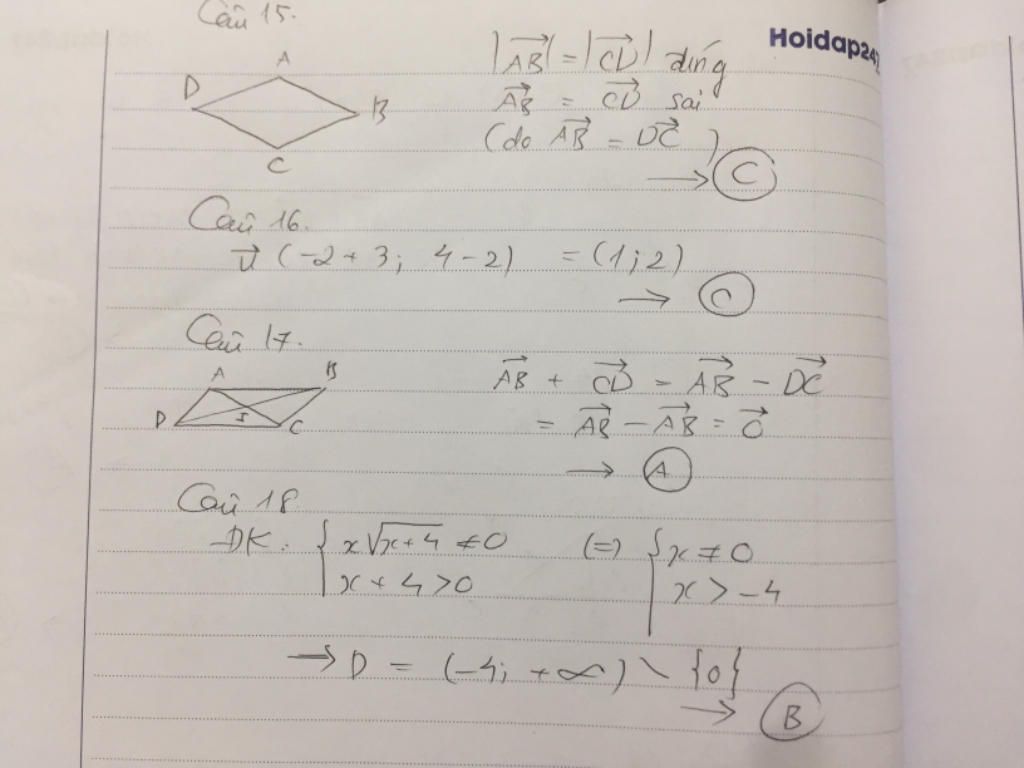 Câu 15.
Hoidap247
A
D
B
C
|$\overrightarrow{AB}$| = |$\overrightarrow{CD}$| đúng
$\overrightarrow{AB}$ = $\overrightarrow{CD}$ sai
(do $\overrightarrow{AB}$ = $\overrightarrow{DC}$)
→ C
Câu 16.
$\vec{u}$ (-2+3; 4-2) = (1;2)
→ C
Câu 17.
A B
D I C
$\overrightarrow{AB}$ + $\overrightarrow{CD}$ = $\overrightarrow{AB}$ - $\overrightarrow{DC}$
= $\overrightarrow{AB}$ - $\overrightarrow{AB}$ = $\vec{0}$
→ A
Câu 18
ĐK: { x√(x+4) ≠ 0 (=) { x ≠ 0
x + 4 > 0 x > -4
→ D = (-4; +∞) \ {0}
→ B